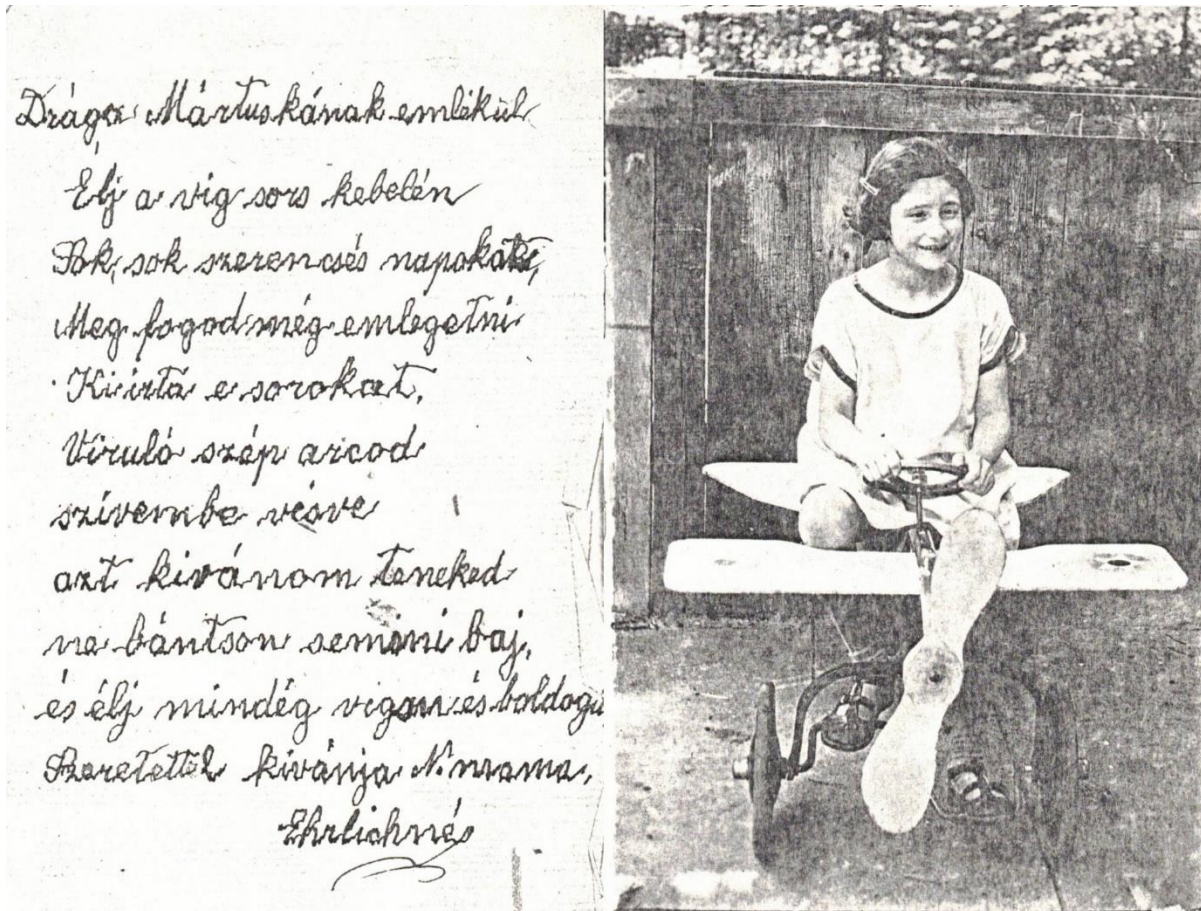 Drága Mártuskának emlékül
Élj a vig sors kebelén
Sok, sok szerencsés napokat,
Meg fogod még emlegetni
Ki irta e sorokat.
Viruló szép arcod
szívembe vésve
azt kivánom teneked
ne bántson semmi baj,
és élj mindég vigan és boldogu
Szeretettel kivánja
Ehrlichné